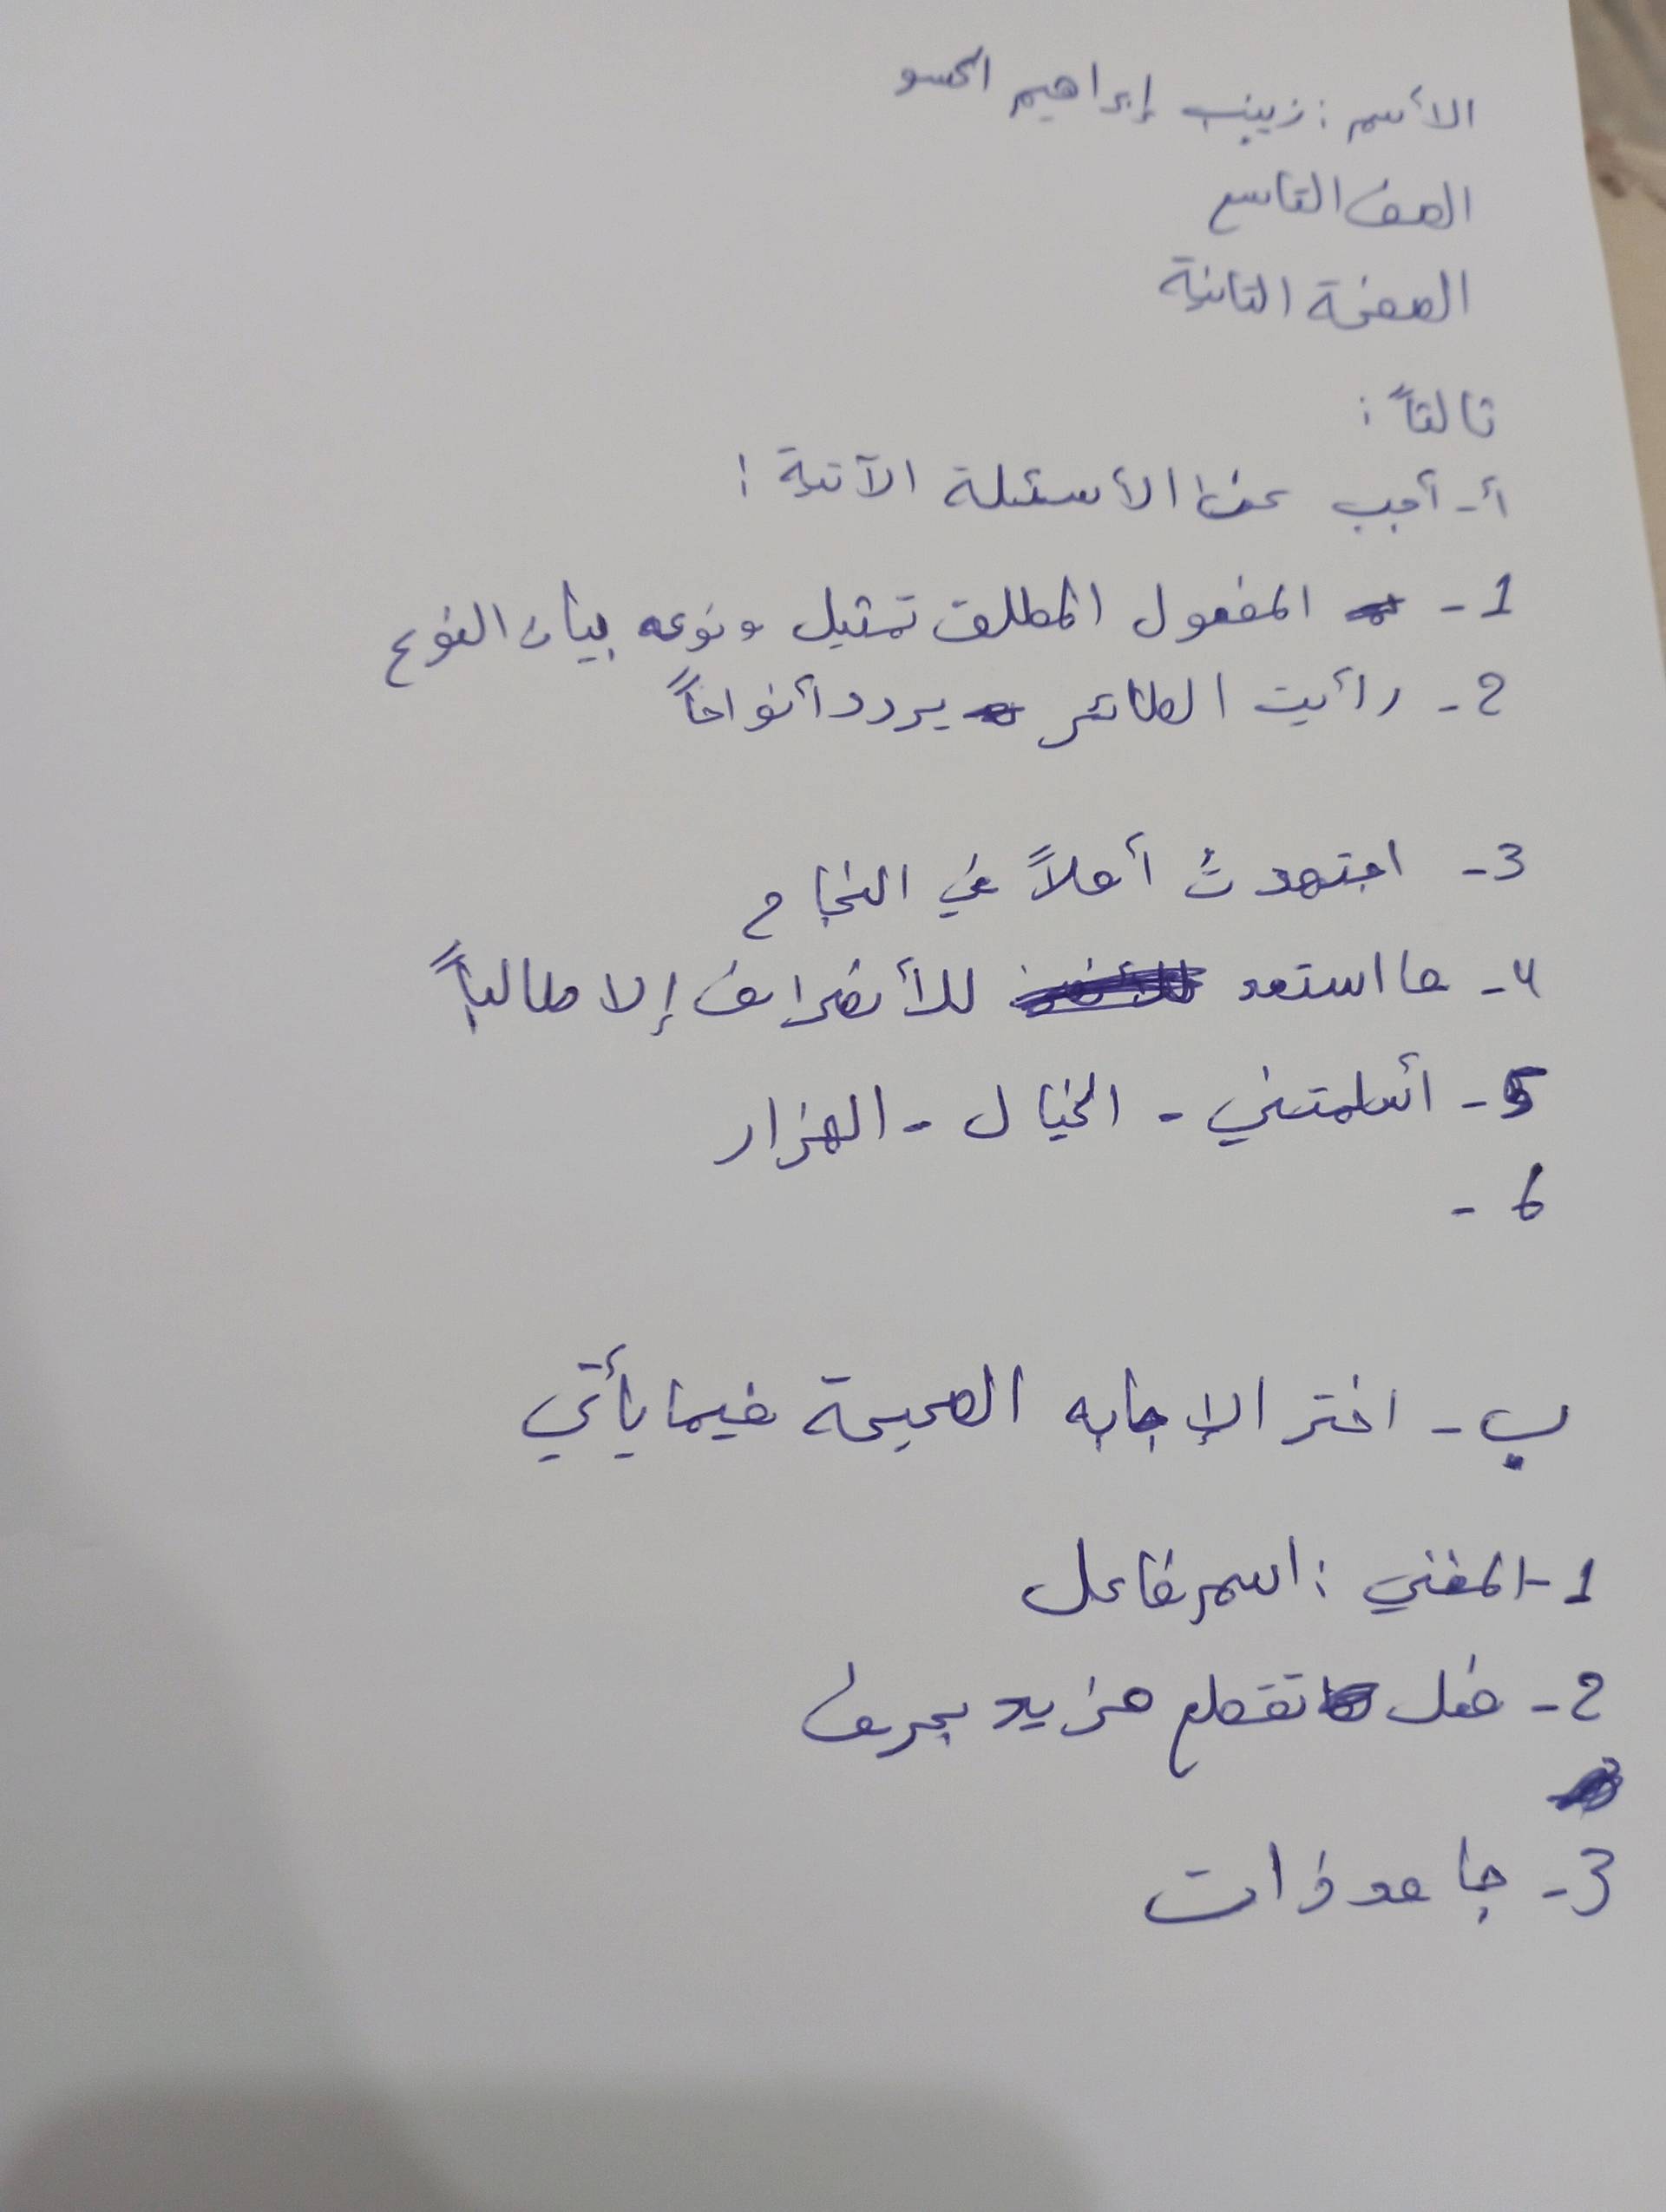 الأسم : زينب إبراهيم الحسو
الصف التاسع
الصفحة الثانية
ثالثاً :
أ - أجب عن الأسئلة الآتية :
1 - المفعول المطلق تمثيل ونوعه بيان النوع
2 - رأيت الطائر يردد أنواحاً
3 - اجتهدتُ أملاً في النجاح
4 - ما استعد للأنصراف إلا طالباً
5 - أسلمتني - الخيال - الهزار
6 -
ب - اختر الإجابه الصحيحة فيما يأتي
1 - المغني : اسم فاعل
2 - فعل تقطع مزيد بحرف
3 - جامد ذات